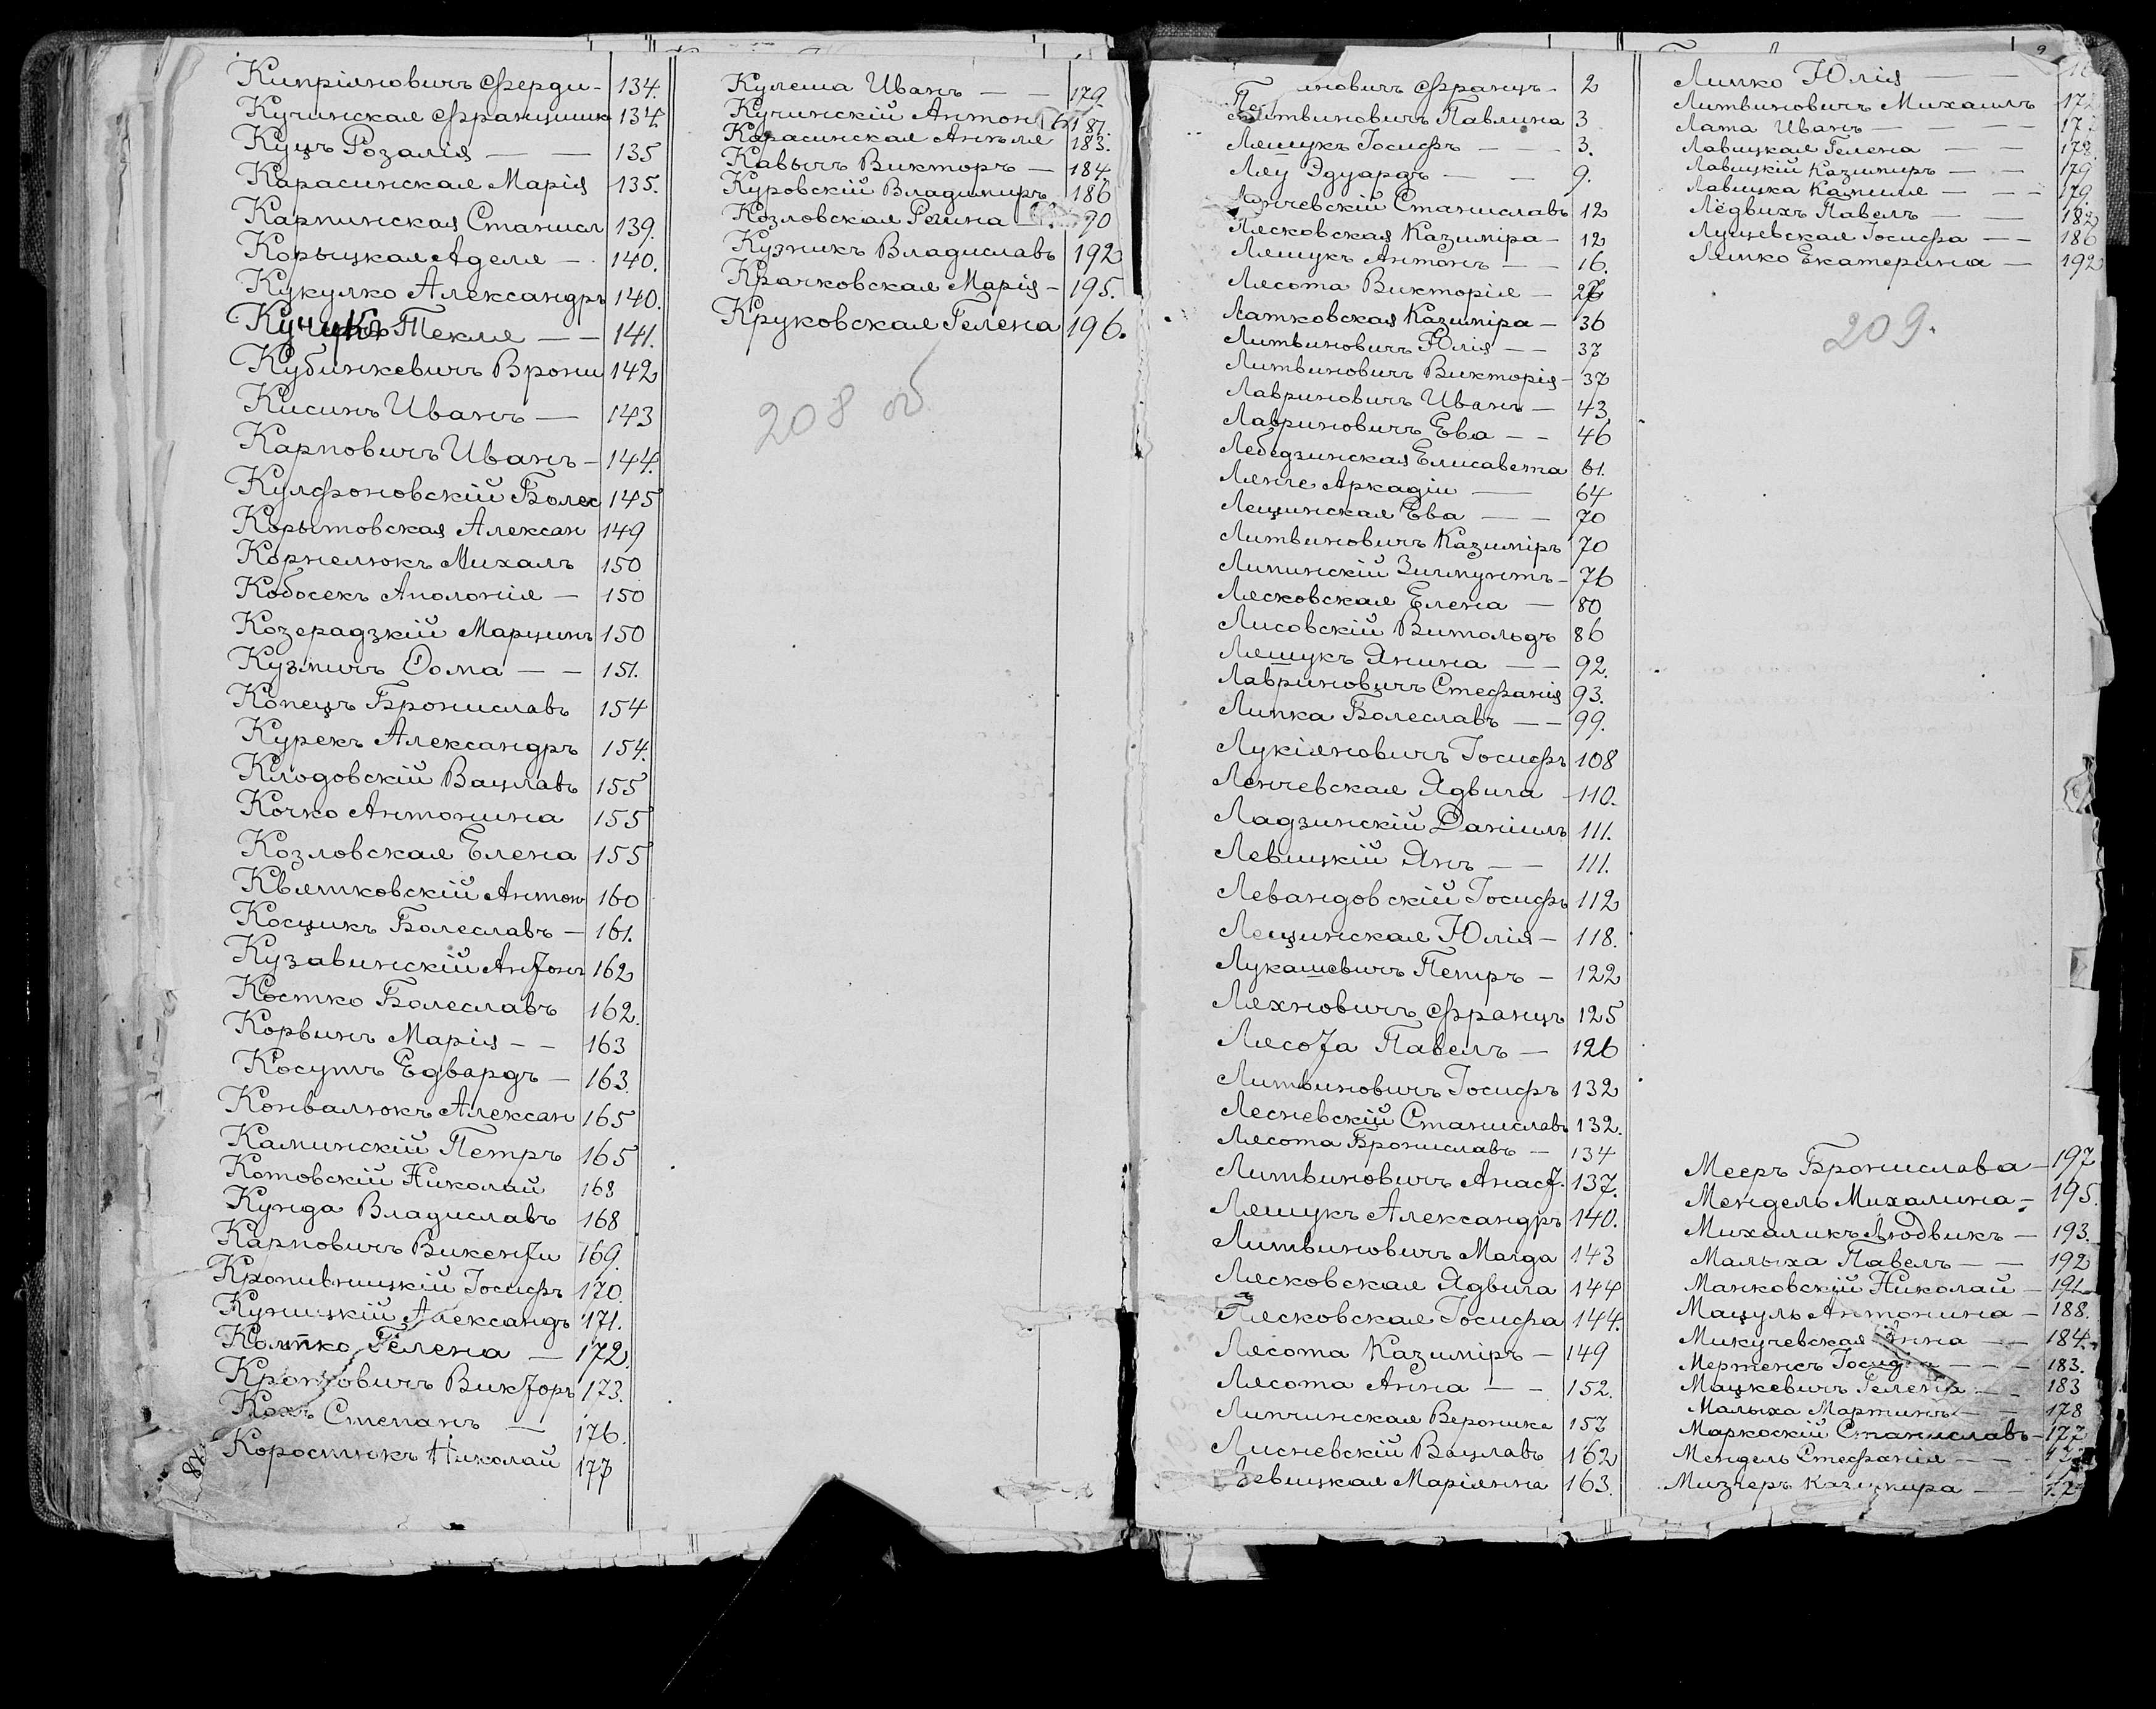 Кипріяновичъ Ферди- 134.
Кучинская Францишк 134.
Куцъ Розалія — — 135
Карасинская Марія 135.
Карпинская Станисл 139.
Корыцкая Аделя — 140.
Кукулко Александръ 140.
Текля — — 141.
Кубинкевичъ Брони 142
Кисинъ Иванъ — 143
Карповичъ Иванъ — 144.
Кулфоновскій Болес 145
Корытовская Алексан 149
Корнелюкъ Михалъ 150
Кобосекъ Аполонія — 150
Козерадзкій Марцинъ 150
Кузмичъ Ѳома — — 151.
Копецъ Брониславъ 154
Курекъ Александръ 154.
Клодовскій Вацлавъ 155
Кочко Антонина 155
Козловская Елена 155
Квятковскій Антон 160
Косцикъ Болеславъ — 161.
Кузавинскій Антонъ 162
Костко Болеславъ 162.
Корвинъ Марія — — 163
Косутъ Едвардъ — 163.
Конвалюкъ Алексан 165
Каминскій Петръ 165
Котовскій Николай 168
Кунда Владиславъ 168
Карповичъ Викенти 169.
Кропивницкій Іосифъ 170.
Куницкій Александъ 171.
Гелена — 172.
Викторъ 173.
Кохъ Степанъ — 176.
Коростикъ Николай 177
Кулеша Иванъ — — 179.
Кучинскій Антон 181.
Карасинская Анеля 183.
Кавычъ Викторъ — 184.
Куровскій Владимиръ 186
Козловская Регина — 90
Кузникъ Владиславъ 192
Крачковская Марія — 195.
Круковская Гелена 196.
208 об
новичъ Францъ — 2
Литвиновичъ Павлина 3
Ляшукъ Іосифъ — — — 3.
Ляу Эдуардъ — — 9.
Станиславъ 12
Лясковская Казиміра — 12
Ляшукъ Антонъ — — 16.
Лясота Викторія — 26
Латковская Казиміра — 36
Литвиновичъ Юлія — — 37
Литвиновичъ Викторія — 37
Лавриновичъ Иванъ — 43
Лавриновичъ Ева — — 46
Лебедзинская Елисавета 61.
Лянге Аркадіи — 64
Лещинская Ева — — 70
Литвиновичъ Казиміръ 70
Липинскій Зигмунтъ — 76
Лясковская Елена — 80
Лисовскій Витольдъ 86
Ляшукъ Янина — — 92.
Лавриновичъ Стефанія 93.
Липка Болеславъ — — 99.
Лукіяновичъ Іосифъ 108
Ленчевская Ядвига 110.
Ладзинскій Даніилъ 111.
Левицкій Янъ — — 111.
Левандовскій Іосифъ 112
Лещинская Юлія — 118.
Лукашевичъ Петръ — 122
Ляхновичъ Францъ 125
Лясота Павелъ — 126
Литвиновичъ Іосифъ 132
Лесневскій Станиславъ 132.
Лясота Брониславъ — 134
Литвиновичъ Анаст. 137.
Ляшукъ Александръ 140.
Литвиновичъ Магда 143
Лясковская Ядвига 144
Лясковская Іосифа 144.
Лясота Казиміръ — 149
Лясота Анна — — 152.
Липчинская Вероника 157
Лисневскій Вацлавъ 162
Левицкая Маріянна 163.
Липко Юлія — —
Литвиновичъ Михаилъ 172
Лата Иванъ — — — 177
Лавицкая Гелена — — 178.
Лавицкій Казимиръ — — 179
Лавицка Камиля — — — 179.
Лёдвихъ Павелъ — — 182
Лущевская Іосифа — — 186
Липко Екатерина — 192
209.
Мееръ Бронислава — 197
Мендель Михалина — 195.
Михаликъ Людвикъ — 193.
Малыха Павелъ — — 192
Манковскій Николай — 191
Мацуль Антонина — 188.
Микучевская Анна — — 184.
Мертенсъ Іосиф — — — 183.
Мацкевичъ Гелена — — 183
Малыха Мартинъ — — 178
Маркоскій Станиславъ — 177
Мендель Стефанія — —
Мизгеръ Казимира — —